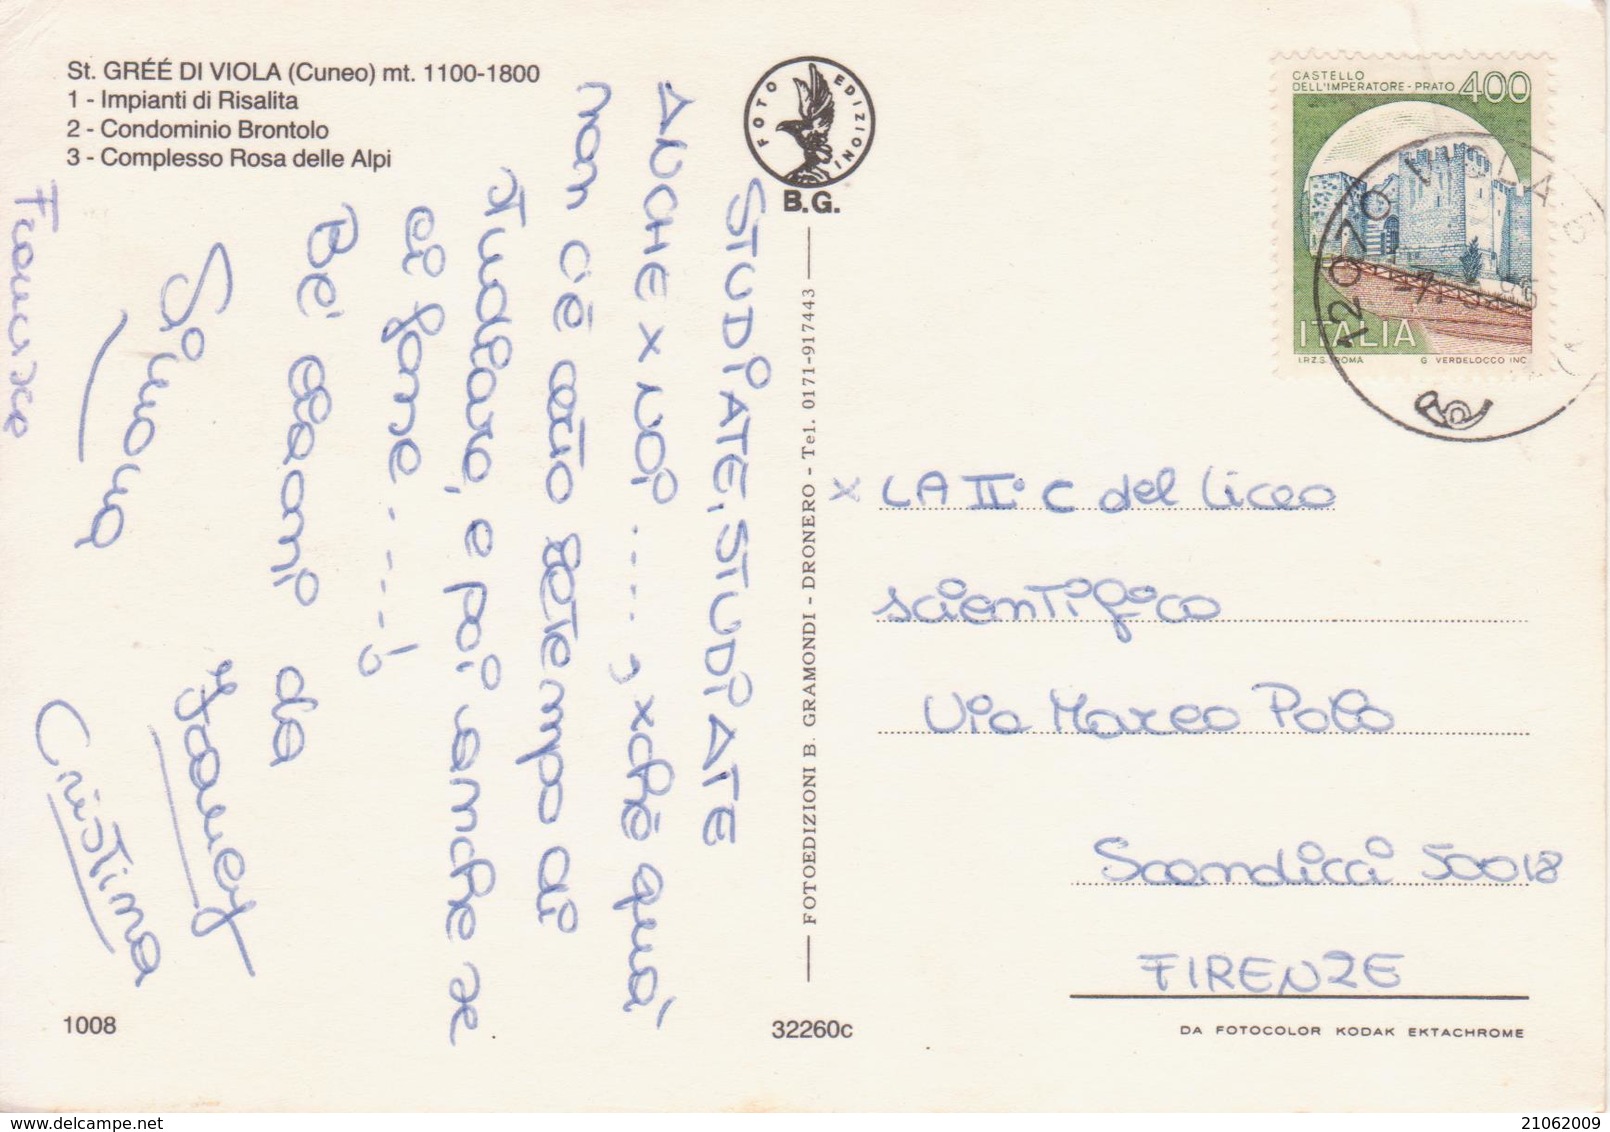 St. GRÉÉ DI VIOLA (Cuneo) mt. 1100-1800
1 - Impianti di Risalita
2 - Condominio Brontolo
3 - Complesso Rosa delle Alpi
FOTO EDIZIONI
B.G.
STUDiATE, STUDiATE
ANCHE x NOi ......, xchè quà
non c'è
tempo di
studiare, e poi neanche se
ci fane .....!
Be' ciaoni da
Simona
Cristina
FOTOEDIZIONI B. GRAMONDI - DRONERO - Tel. 0171-917443
1008
32260c
CASTELLO
DELL'IMPERATORE - PRATO 400
ITALIA
I.P.Z.S. ROMA G. VERDELOCCO INC.
12070 VIOLA
x LA II° C del Liceo
scientifico
Via Marco Polo
Scandicci 50018
FIRENZE
DA FOTOCOLOR KODAK EKTACHROME
21062009